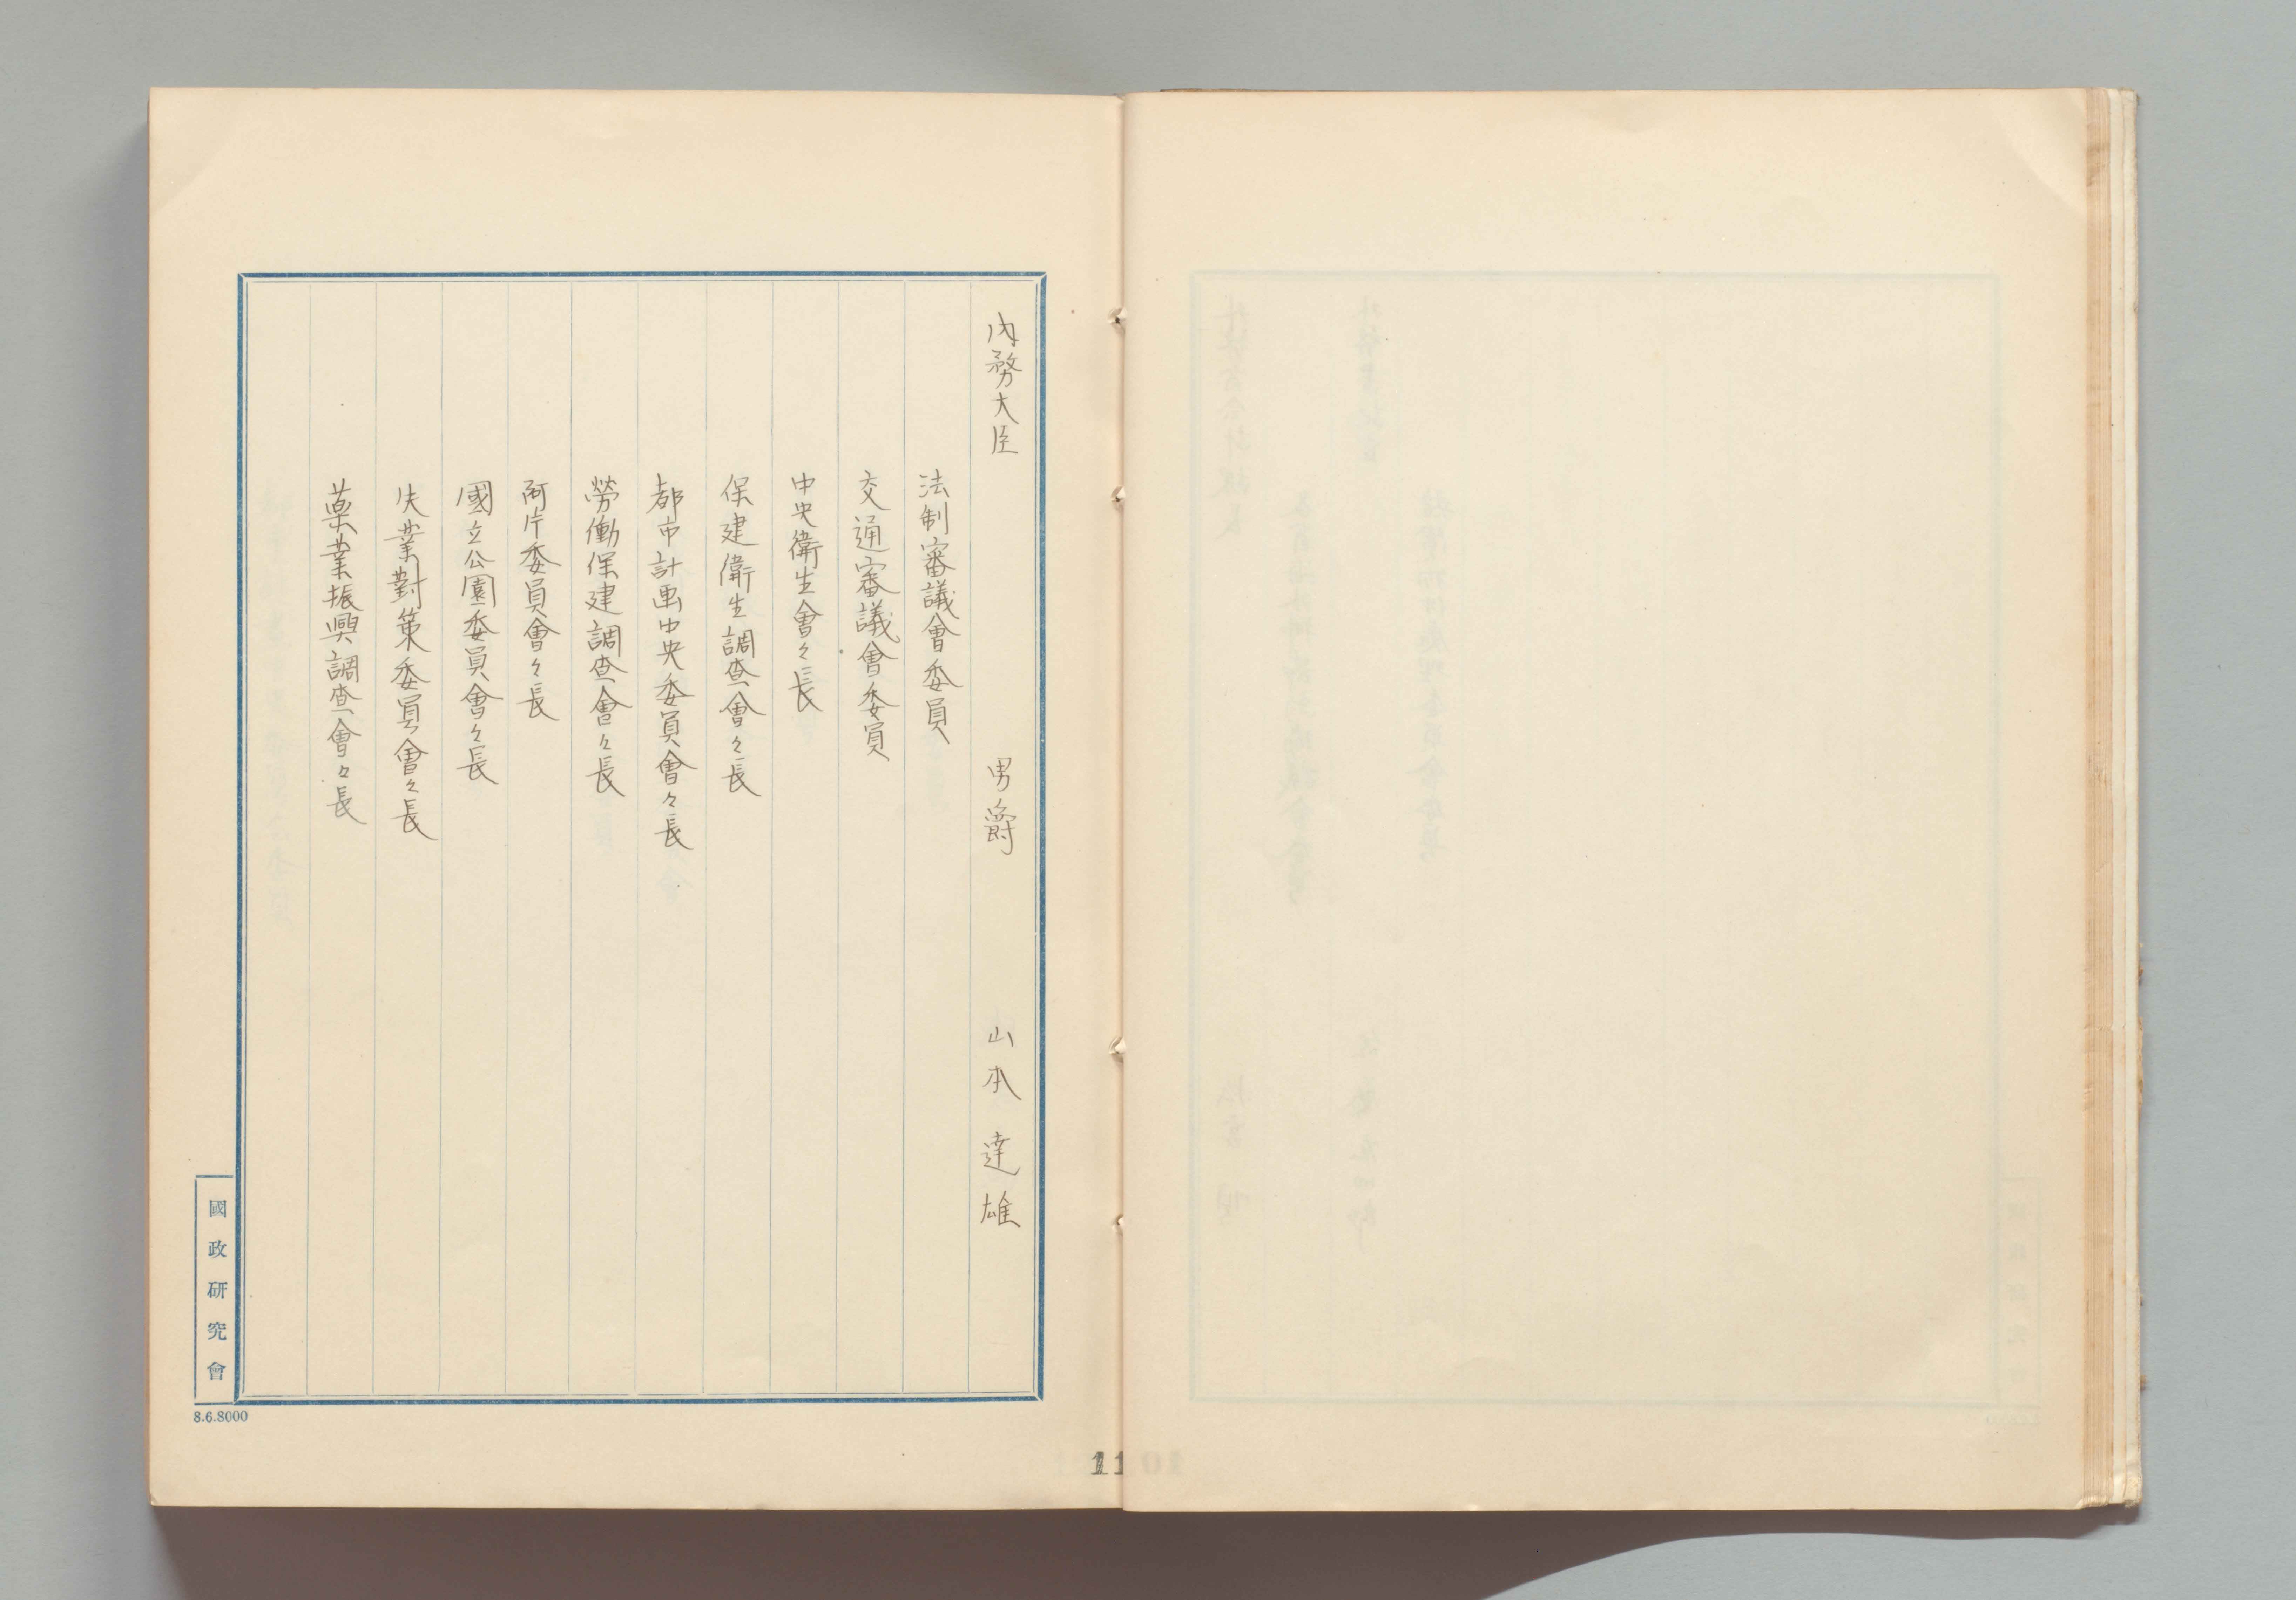 內務大臣 男爵 山本達雄
法制審議會委員
交通審議會委員
中央衛生會々長
保建衛生調查會々長
都市計画中央委員會々長
勞働保建調查會々長
阿片委員會々長
國立公園委員會々長
失業對策委員會々長
薬業振興調查會々長
國政研究會
8.6.8000
11